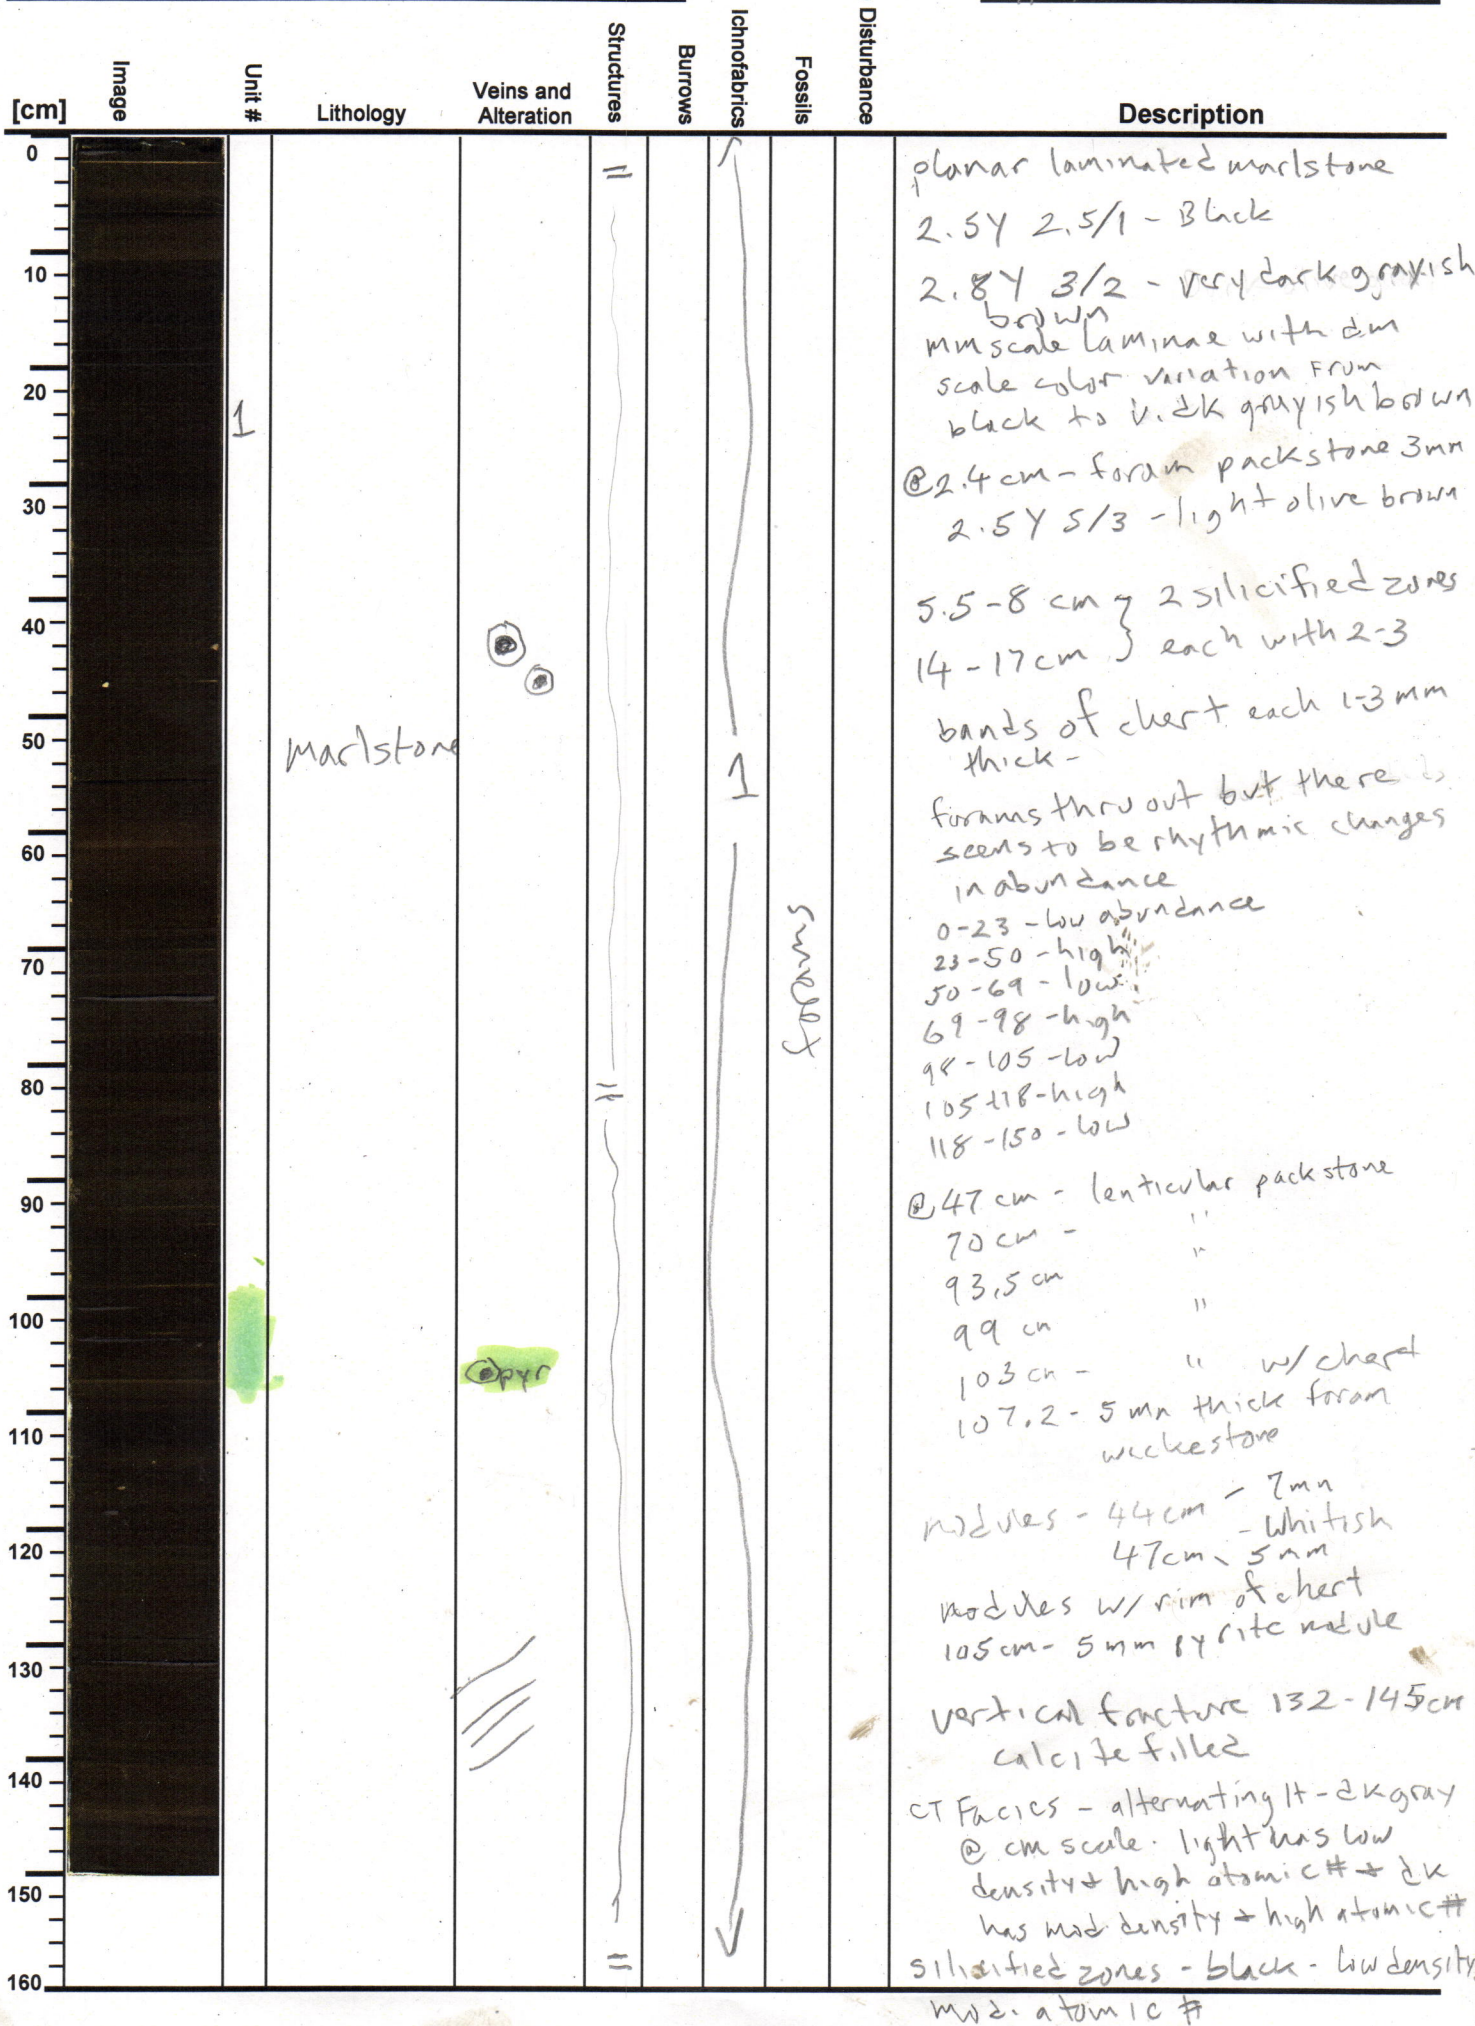 [cm]
Image
Unit #
Lithology
Veins and
Alteration
Structures
Burrows
Ichnofabrics
Fossils
Disturbance
Description
0
10
20
30
40
50
60
70
80
90
100
110
120
130
140
150
160
1
marlstone
pyr
1
forams
planar laminated marlstone
2.5Y 2.5/1 - Black
2.8Y 3/2 - very dark grayish
brown
mm scale laminae with dm
scale color variation From
black to v. dk grayish brown
@2.4 cm - foram packstone 3mm
2.5Y 5/3 - light olive brown
5.5-8 cm } 2 silicified zones
14-17cm } each with 2-3
bands of chert each 1-3 mm
thick -
forams thru out but there is
seems to be rhythmic changes
in abundance
0-23 - low abundance
23-50 - high
50-69 - low
69-98 - high
98-105 - low
105-118 - high
118-150 - low
@ 47 cm - lenticular packstone
70 cm - "
93.5 cm "
99 cm "
103 cm - " w/ chert
107.2 - 5 mm thick foram
wackestone
nodules - 44cm - 7mm
- whitish
47cm - 5mm
nodules w/ rim of chert
105cm - 5mm pyrite nodule
vertical fracture 132-145cm
calcite filled
CT Facies - alternating lt - dk gray
@ cm scale. light has low
density + high atomic # + dk
has mod density + high atomic #
silicified zones - black - low density,
mod. atomic #